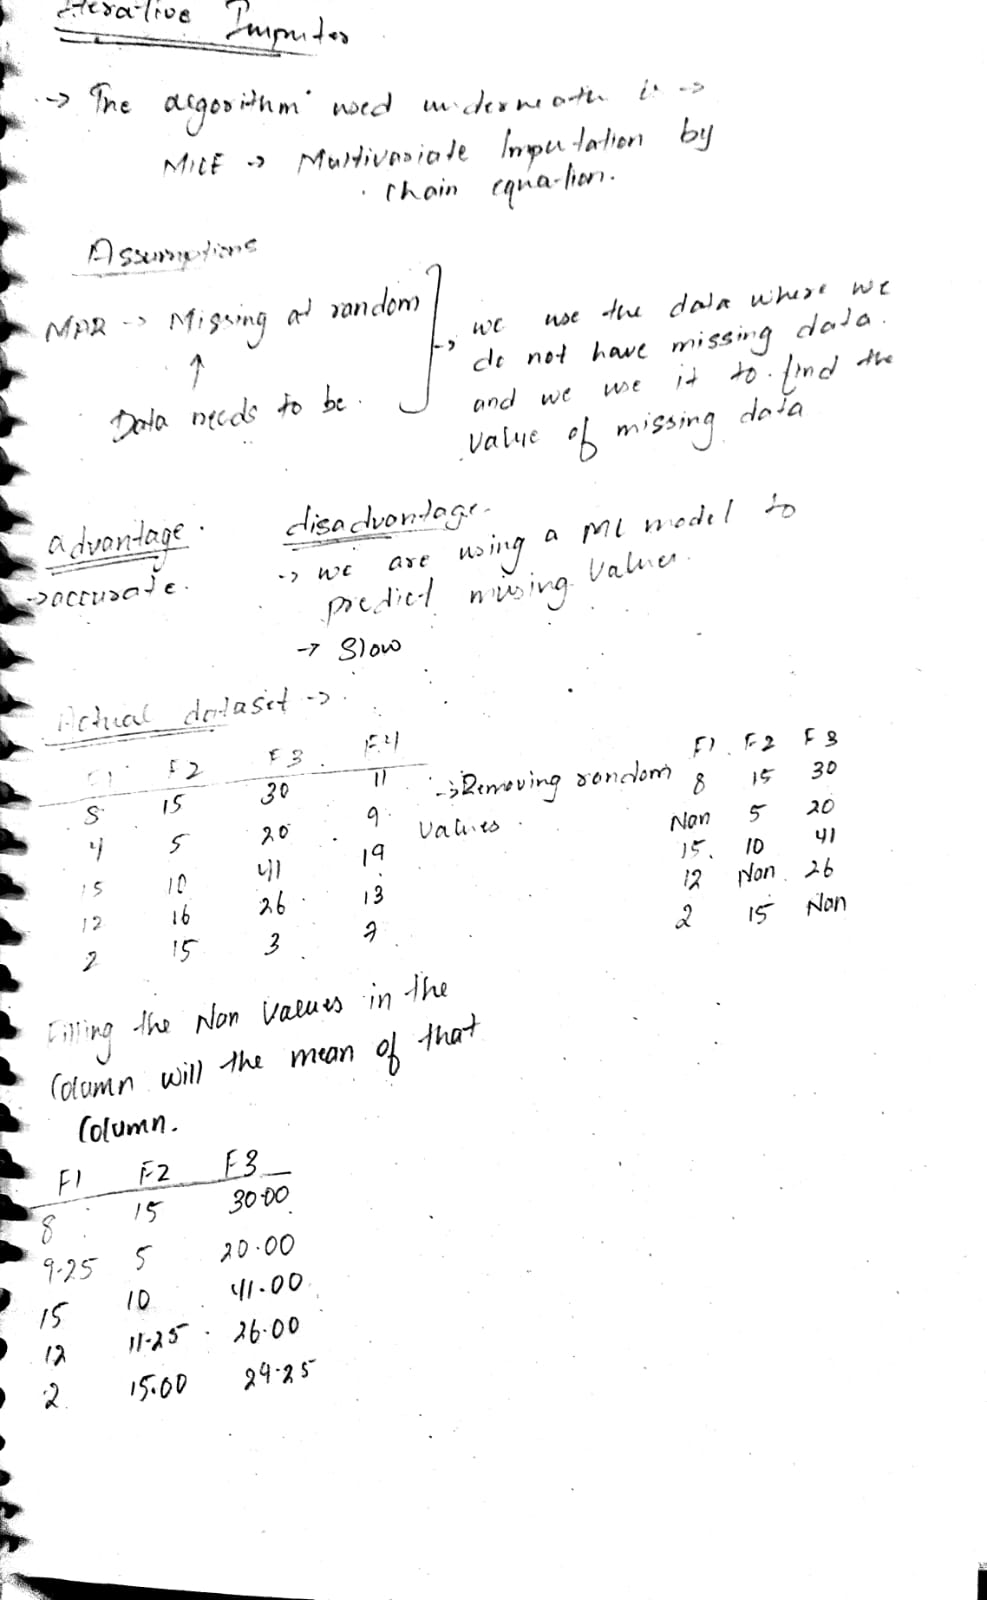 Iterative Imputer
-> The algorithm used underneath is ->
MICE -> Multivariate Imputation by
Chain equation.
Assumptions
MAR -> Missing at random
↑
Data needs to be.
-> we use the data where we
do not have missing data.
and we use it to find the
value of missing data
advantage.
-> accurate.
disadvantage.
-> we are using a ML model to
predict missing values.
-> Slow
Actual dataset ->
F1 F2 F3 F4
8 15 30 11
4 5 20 9
15 10 41 19
12 16 26 13
2 15 3 7
-> Removing random
values.
F1 F2 F3
8 15 30
Nan 5 20
15 10 41
12 Nan 26
2 15 Nan
Filling the Nan values in the
Column will the mean of that
Column.
F1 F2 F3
8 15 30.00
9.25 5 20.00
15 10 41.00
12 11.25 26.00
2 15.00 29.25